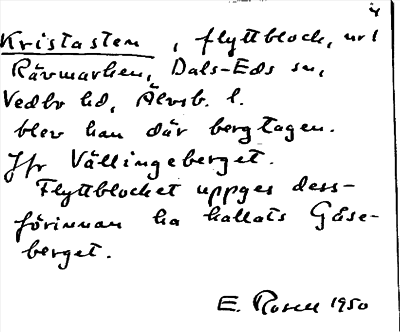 4
Kristasten, flyttblock, nr 1
Rävmarken, Dals-Eds sn,
Vedbo hd, Älvsb. l.
blev han där bergtagen.
Jfr Vällingeberget.
Flyttblocket uppges dess-
förinnan ha kallats Gåse-
berget.
E. Rosell 1950